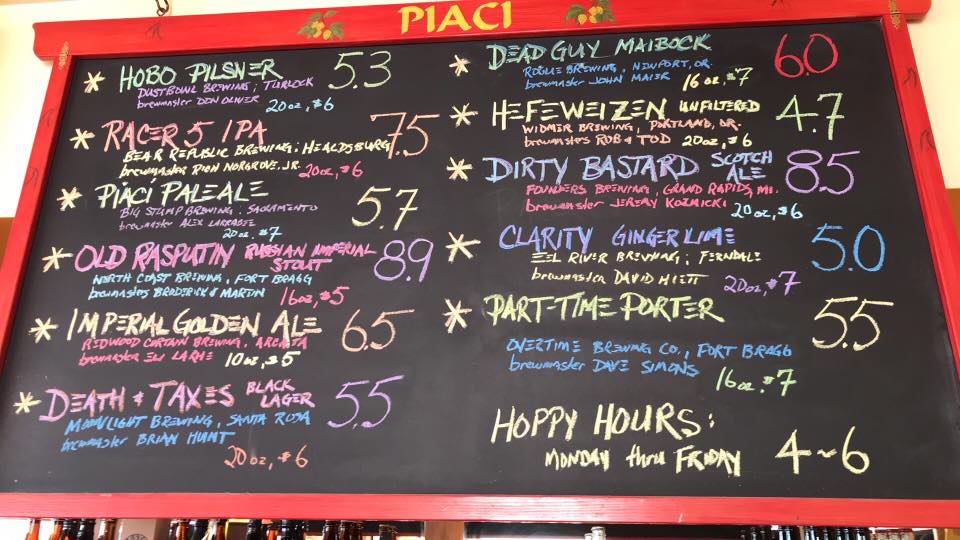 PIACI
* HOBO PILSNER 5.3
DUSTBOWL BREWING; TURLOCK
brewmaster DON OLIVER
20oz, $6
* RACER 5 IPA 7.5
BEAR REPUBLIC BREWING; HEALDSBURG
brewmaster RICH NORGROVE, JR.
20oz, $6
* PIACI PALE ALE 5.7
BIG STUMP BREWING; SACRAMENTO
brewmaster ALEX LARRABEE
20oz, $7
* OLD RASPUTIN RUSSIAN IMPERIAL STOUT 8.9
NORTH COAST BREWING, FORT BRAGG
brewmasters BRODERICK & MARTIN 16oz, $5
* IMPERIAL GOLDEN ALE 6.5
REDWOOD CURTAIN BREWING, ARCATA
brewmaster ELI LARUE 10oz, $5
* DEATH & TAXES BLACK LAGER 5.5
MOONLIGHT BREWING, SANTA ROSA
brewmaster BRIAN HUNT
20oz, $6
* DEAD GUY MAIBOCK 6.0
ROGUE BREWING, NEWPORT, OR.
brewmaster JOHN MAIER 16oz, $7
* HEFEWEIZEN UNFILTERED 4.7
WIDMER BREWING, PORTLAND, OR.
brewmasters ROB & TOD 20oz, $6
* DIRTY BASTARD SCOTCH ALE 8.5
FOUNDERS BREWING, GRAND RAPIDS, MI.
brewmaster JEREMY KOZMICKI
20oz, $6
* CLARITY GINGER LIME 5.0
EEL RIVER BREWING; FERNDALE
brewmaster DAVID HIETT 20oz, $7
* PART-TIME PORTER 5.5
OVERTIME BREWING CO., FORT BRAGG
brewmaster DAVE SIMONS
16oz, $7
HOPPY HOURS:
MONDAY thru FRIDAY 4~6